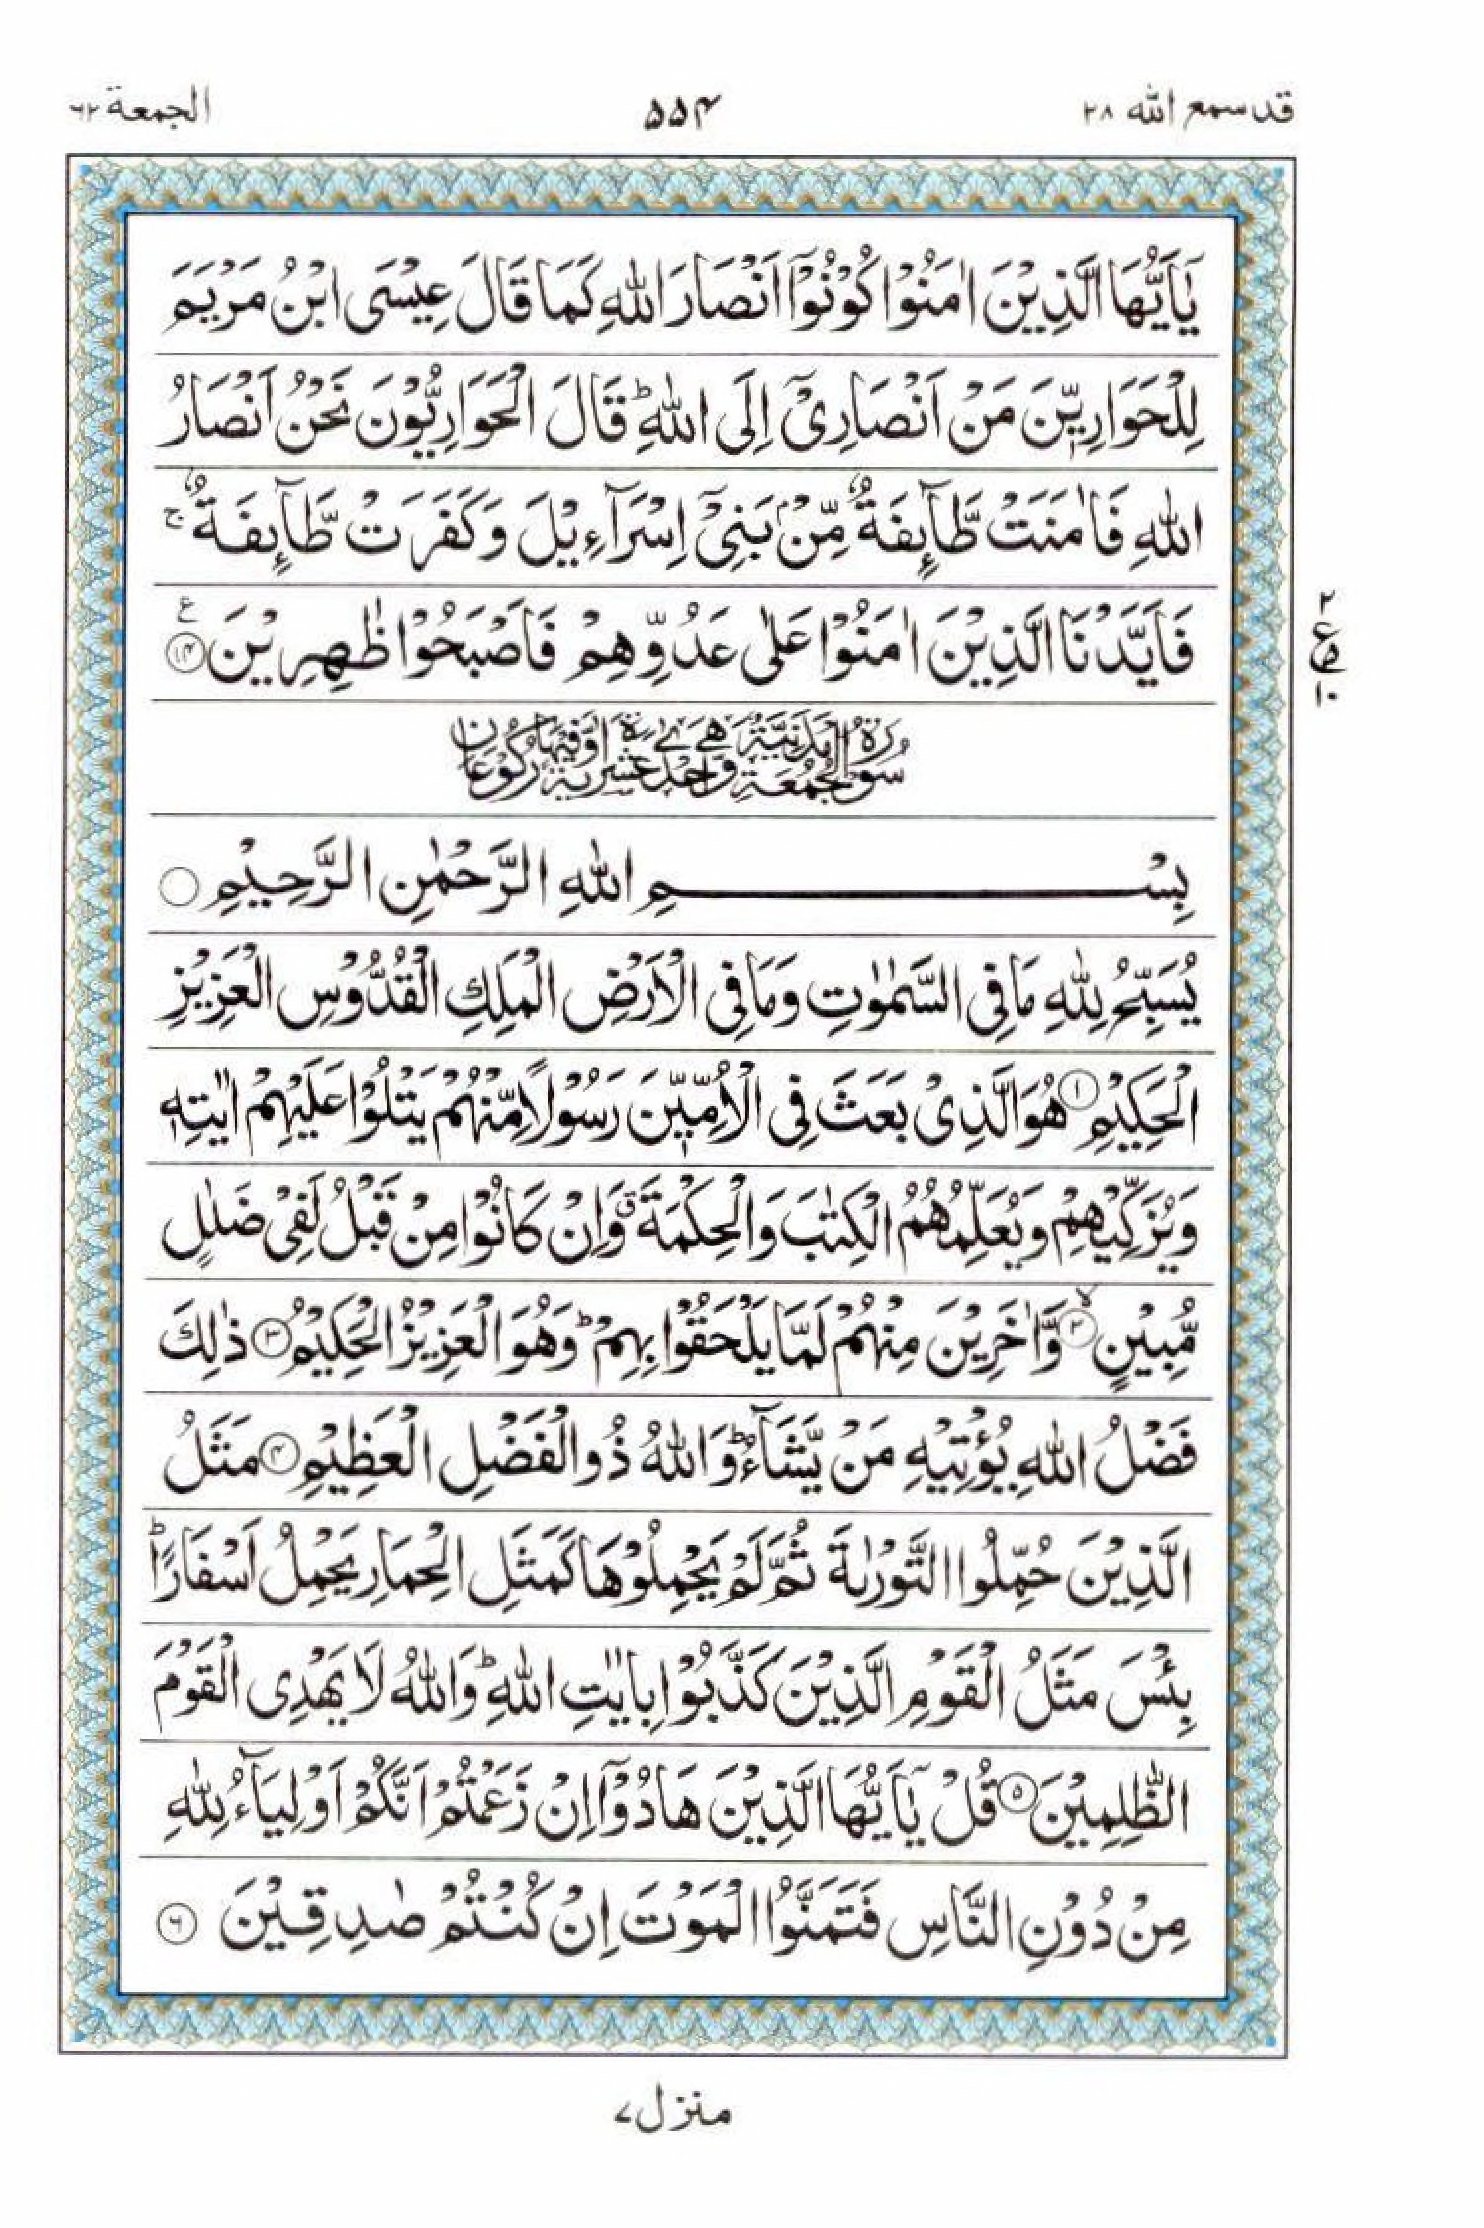 قد سمع الله ۲۸
۵۵۴
الجمعة ۶۲
يٰۤاَيُّهَا الَّذِيْنَ اٰمَنُوْا كُوْنُوْۤا اَنْصَارَ اللّٰهِ كَمَا قَالَ عِيْسَى ابْنُ مَرْيَمَ
لِلْحَوَارِيّٖنَ مَنْ اَنْصَارِىْۤ اِلَى اللّٰهِؕ قَالَ الْحَوَارِيُّوْنَ نَحْنُ اَنْصَارُ
اللّٰهِ فَاٰمَنَتْ طَّآىِٕفَةٌ مِّنْۢ بَنِىْۤ اِسْرَآءِيْلَ وَكَفَرَتْ طَّآىِٕفَةٌ ۚ
فَاَيَّدْنَا الَّذِيْنَ اٰمَنُوْا عَلٰى عَدُوِّهِمْ فَاَصْبَحُوْا ظٰهِرِيْنَ ۱۴ ع
۲
ع
۵
۱۰
سُوْرَةُ الْجُمُعَةِ مَدَنِيَّةٌ وَّهِىَ اِحْدٰى عَشْرَةَ اٰيَةً وَّفِيْهَا رُكُوْعَانِ
بِسْمِ اللّٰهِ الرَّحْمٰنِ الرَّحِيْمِ
يُسَبِّحُ لِلّٰهِ مَا فِى السَّمٰوٰتِ وَمَا فِى الْاَرْضِ الْمَلِكِ الْقُدُّوْسِ الْعَزِيْزِ
الْحَكِيْمِ ۱ هُوَ الَّذِىْ بَعَثَ فِى الْاُمِّيّٖنَ رَسُوْلًا مِّنْهُمْ يَتْلُوْا عَلَيْهِمْ اٰيٰتِهٖ
وَيُزَكِّيْهِمْ وَيُعَلِّمُهُمُ الْكِتٰبَ وَالْحِكْمَةَ ۗ وَاِنْ كَانُوْا مِنْ قَبْلُ لَفِىْ ضَلٰلٍ
مُّبِيْنٍ ۲ۙ وَّاٰخَرِيْنَ مِنْهُمْ لَمَّا يَلْحَقُوْا بِهِمْؕ وَهُوَ الْعَزِيْزُ الْحَكِيْمُ ۳ ذٰلِكَ
فَضْلُ اللّٰهِ يُؤْتِيْهِ مَنْ يَّشَآءُؕ وَاللّٰهُ ذُو الْفَضْلِ الْعَظِيْمِ ۴ مَثَلُ
الَّذِيْنَ حُمِّلُوا التَّوْرٰىةَ ثُمَّ لَمْ يَحْمِلُوْهَا كَمَثَلِ الْحِمَارِ يَحْمِلُ اَسْفَارًاؕ
بِئْسَ مَثَلُ الْقَوْمِ الَّذِيْنَ كَذَّبُوْا بِاٰيٰتِ اللّٰهِؕ وَاللّٰهُ لَا يَهْدِى الْقَوْمَ
الظّٰلِمِيْنَ ۵ قُلْ يٰۤاَيُّهَا الَّذِيْنَ هَادُوْۤا اِنْ زَعَمْتُمْ اَنَّكُمْ اَوْلِيَآءُ لِلّٰهِ
مِنْ دُوْنِ النَّاسِ فَتَمَنَّوُا الْمَوْتَ اِنْ كُنْتُمْ صٰدِقِيْنَ ۶
منزل ۷